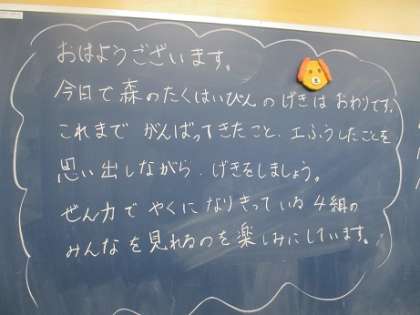 おはようございます。
今日で森のたくはいびんのげきはおわりです。
これまでがんばってきたこと、工ふうしたことを
思い出しながら、げきをしましょう。
ぜん力でやくになりきっている4組の
みんなを見れるのを楽しみにしています。